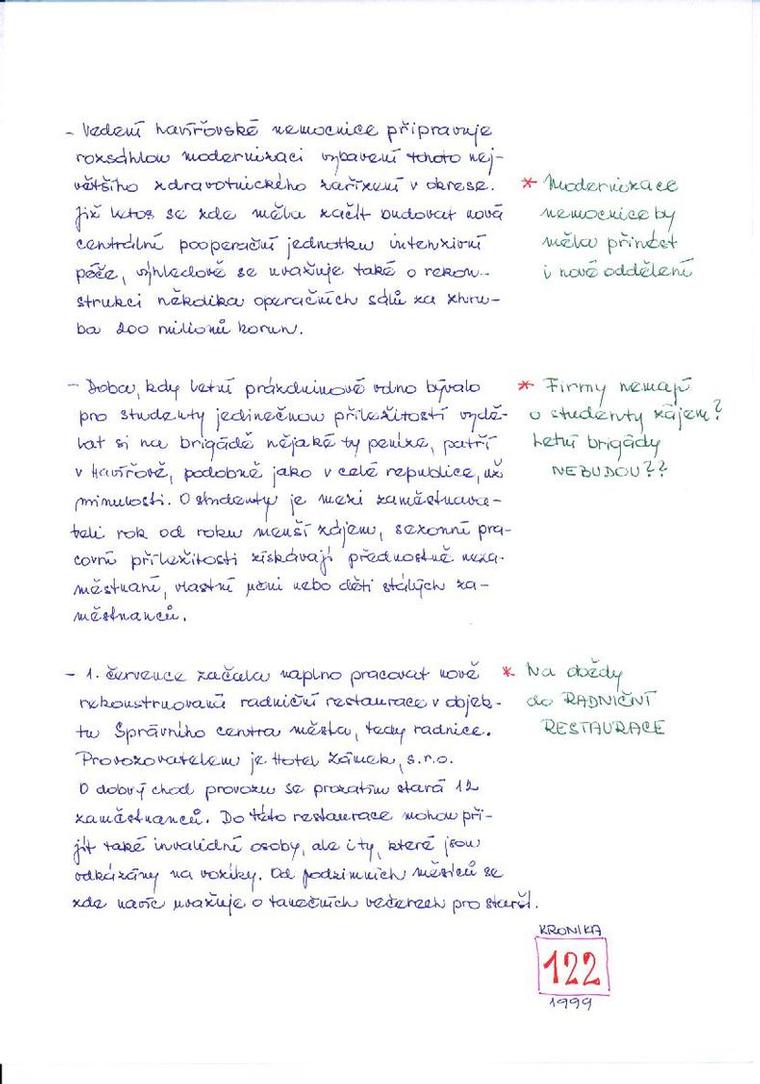 - Vedení havířovské nemocnice připravuje
rozsáhlou modernizaci vybavení tohoto nej-
většího zdravotnického zařízení v okrese.
Již letos se zde měla začít budovat nová
centrální pooperační jednotku intenzivní
péče, výhledově se uvažuje také o rekon-
strukci několika operačních sálů za zhru-
ba 200 milionů korun.
* Modernizace
nemocnice by
měla přinést
i nové oddělení
- Doba, kdy letní prázdninové volno bývalo
pro studenty jedinečnou příležitostí vydě-
lat si na brigádě nějaké ty peníze, patří
v Havířově, podobně jako v celé republice, už
minulosti. O studenty je mezi zaměstnava-
teli rok od roku menší zájem, sezonní pra-
covní příležitosti získávají přednostně neza-
městnaní, vlastní učni nebo děti stálých za-
městnanců.
* Firmy nemají
o studenty zájem?
Letní brigády
NEBUDOU??
- 1. července začala naplno pracovat nově
rekonstruovaná radniční restaurace v objek-
tu Správního centra města, tedy radnice.
Provozovatelem je Hotel Zámek, s.r.o.
O dobrý chod provozu se prozatím stará 12
zaměstnanců. Do této restaurace mohou při-
jít také invalidní osoby, ale i ty, které jsou
odkázány na vozíky. Od podzimních měsíců se
zde navíc uvažuje o tanečních večerech pro starší.
* Na obědy
do RADNIČNÍ
RESTAURACE
KRONIKA
122
1999